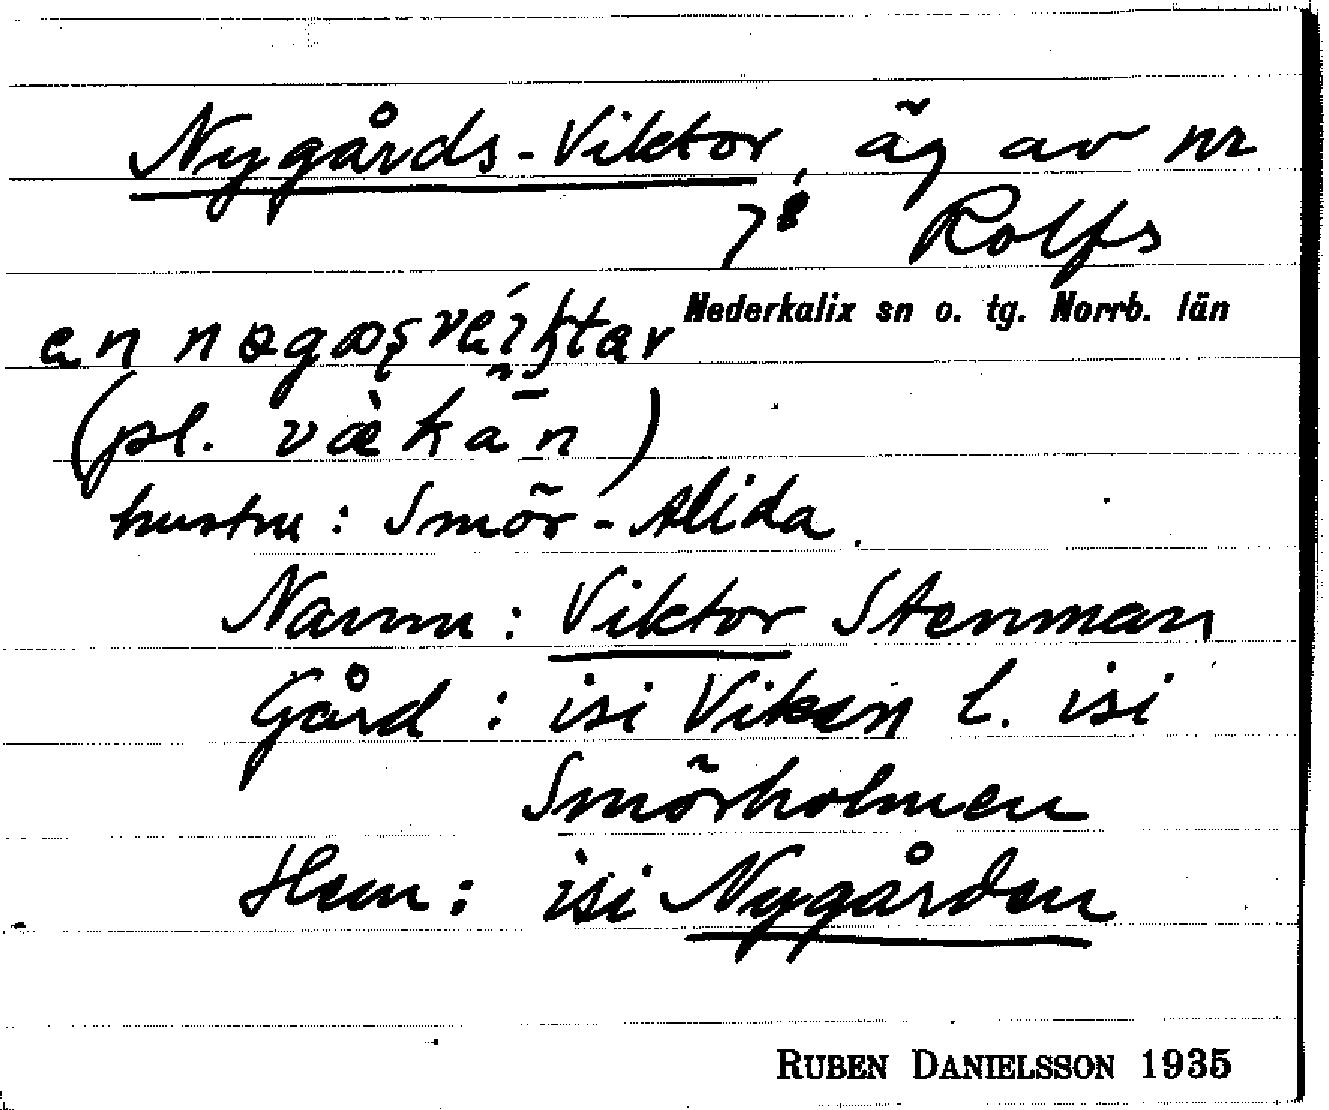 Nygårds-Viktor, äg av nr
7⁸ Rolfs
Nederkalix sn o. tg. Norrb. län
(pl. vækān)
hustru: Smör-Alida.
Namn: Viktor Stenman
Gård: isi Viken l. isi
Smörholmen
Hem: isi Nygården
RUBEN DANIELSSON 1935